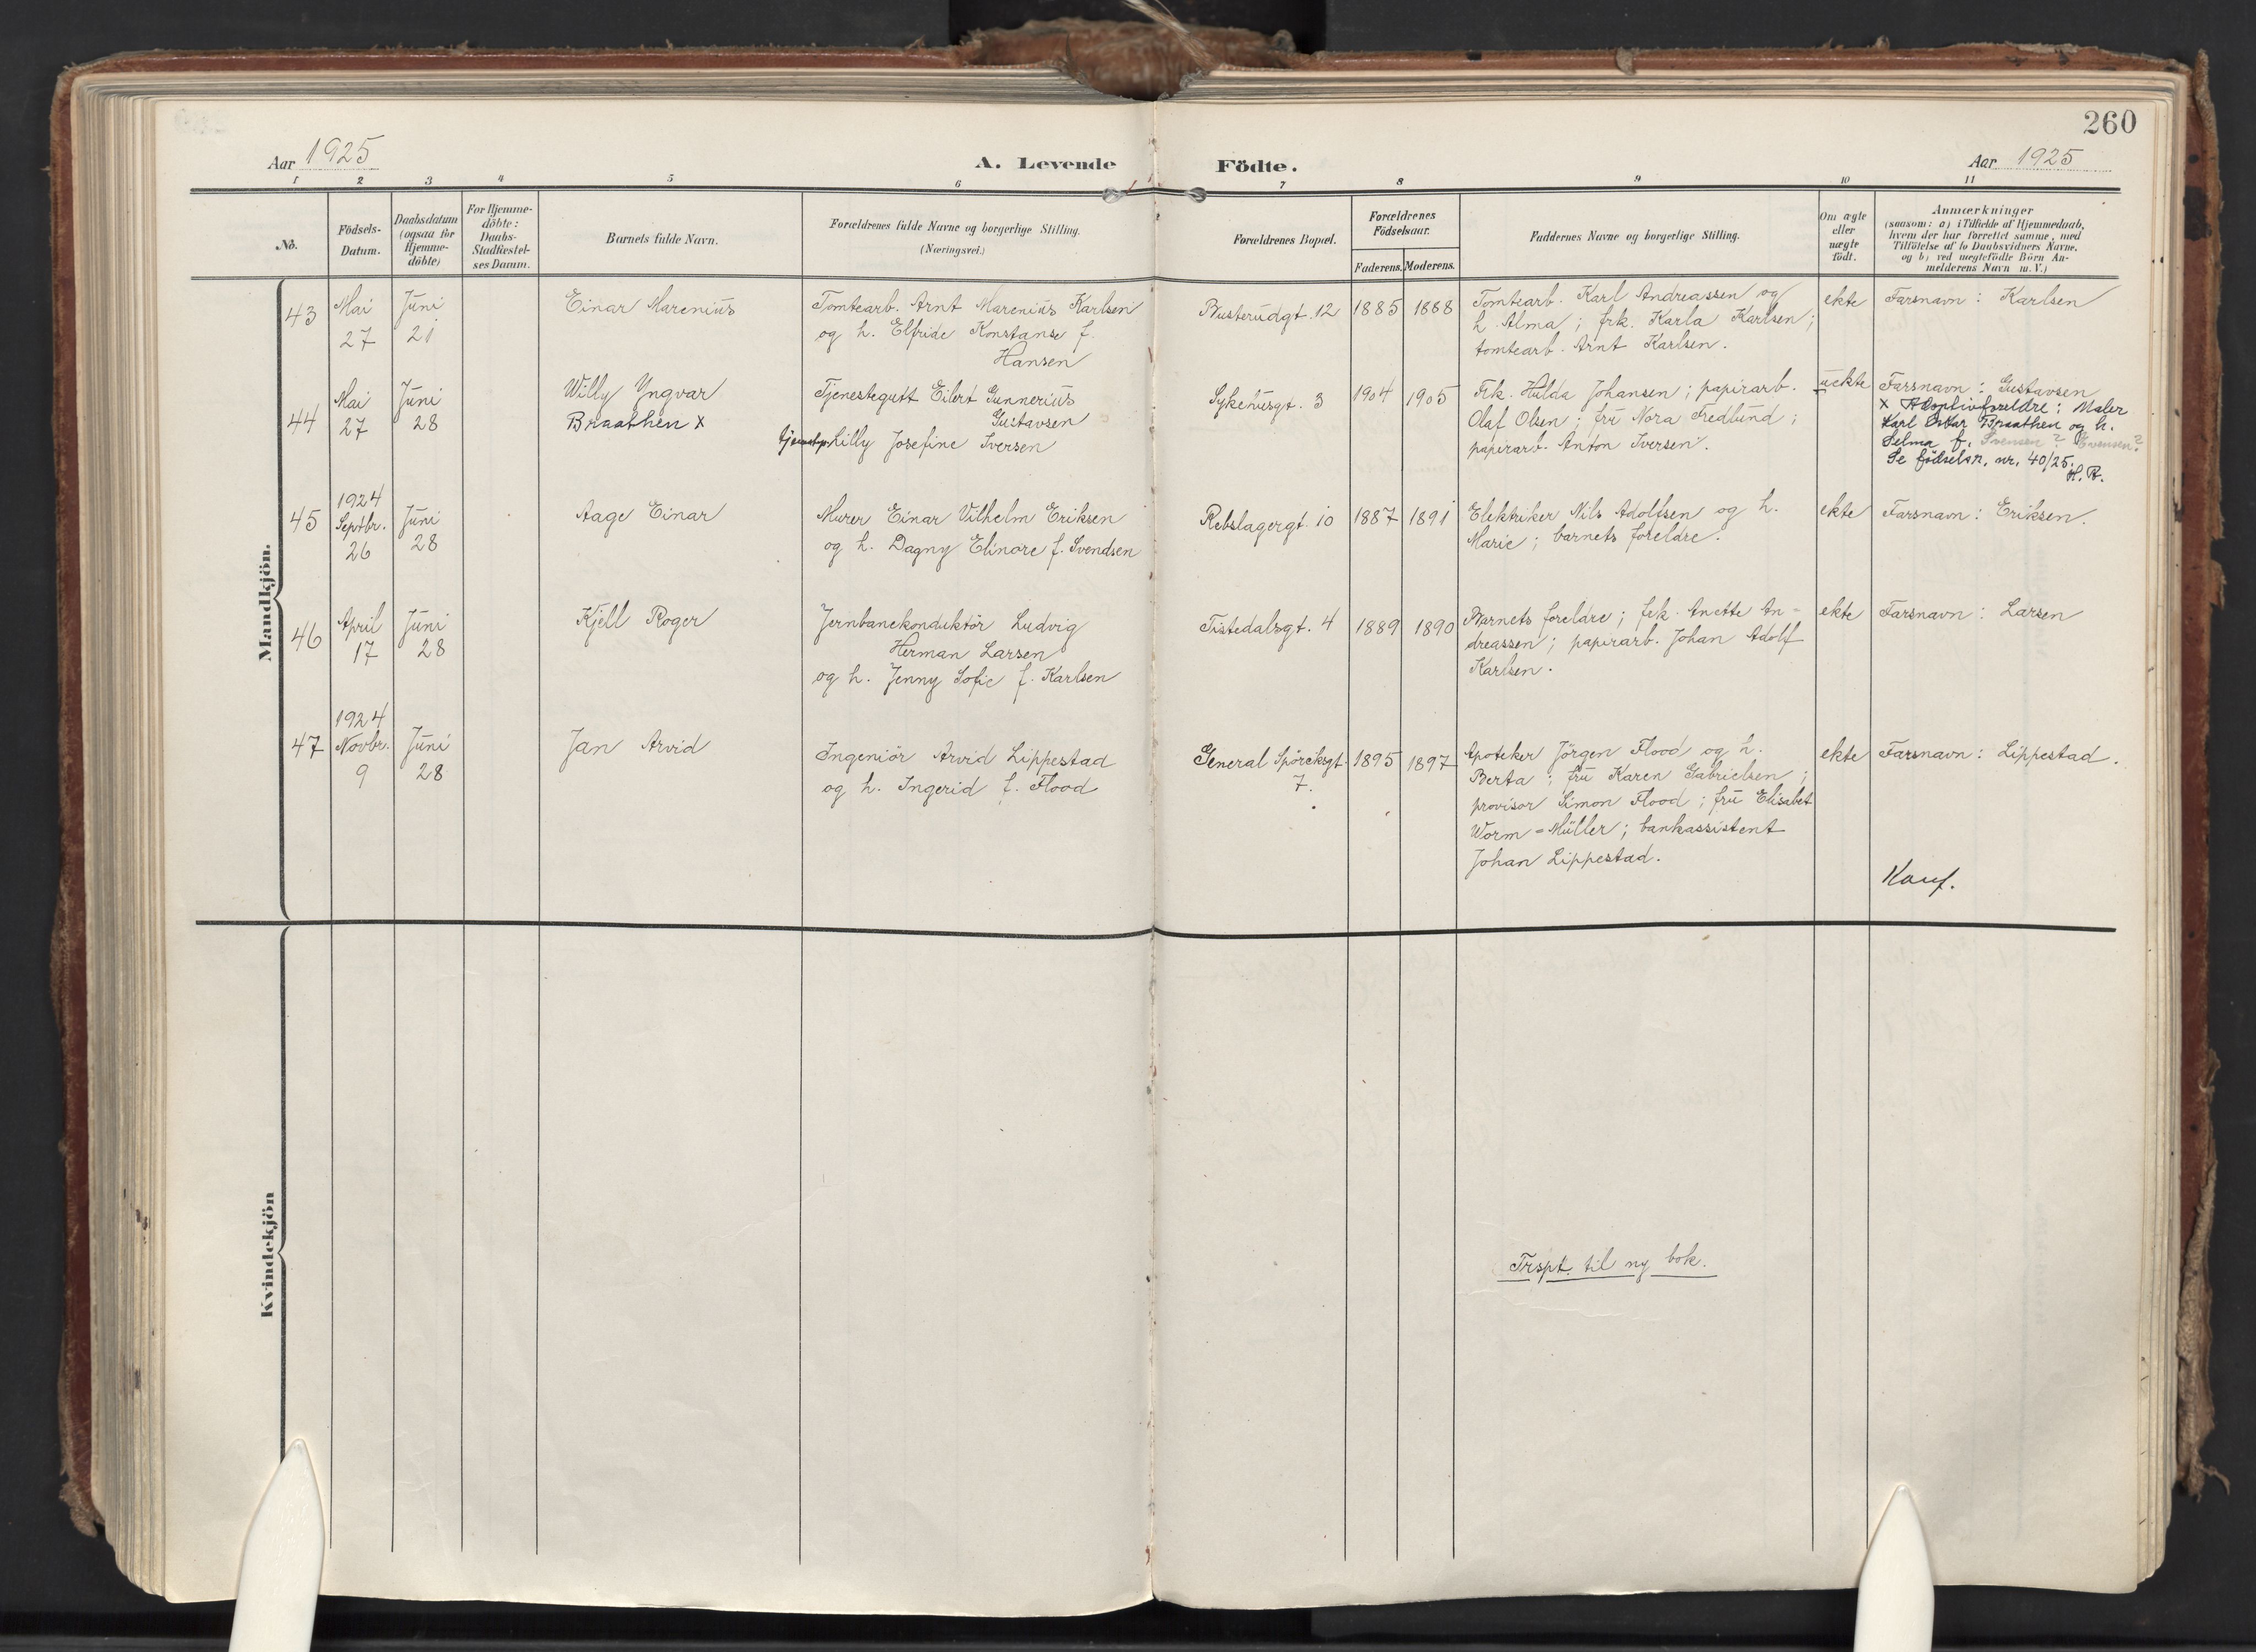 260
Aar 1925
A. Levende Födte.
Aar 1925
1 2 3 4 5 6 7 8 9 10 11
No.
Födsels-
Datum.
Daabsdatum
(ogsaa for
Hjemme-
döbte)
For Hjemme-
döbte:
Daabs-
Stadfæstel-
ses Datum.
Barnets fulde Navn.
Forældrenes fulde Navne og borgerlige Stilling.
(Næringsvei.)
Forældrenes Bopæl.
Forældrenes
Födselsaar.
Faderens. Moderens.
Faddernes Navne og borgerlige Stilling.
Om ægte
eller
uægte
födt.
Anmærkninger
(saasom: a) i Tilfælde af Hjemmedaab,
hvem der har forrettet samme, med
Tilföielse af to Daabsvidners Navne,
og b) ved uægtefödte Börn An-
melderens Navn m. V.)
Mandkjön.
43
Mai
27
Juni
21
Einar Marenius
Tomtearb. Arnt Marenius Karlsen
og h. Elfride Konstanse f.
Hansen
Busterudgt. 12
1885
1888
Tomtearb. Karl Andreassen og
h. Alma; frk. Karla Karlsen;
tomtearb. Arnt Karlsen.
ekte
Farsnavn: Karlsen
44
Mai
27
Juni
28
Willy Yngvar
Braathen x
Tjenestegutt Eilert Gunnerius
Gustavsen
Lilly Josefine Iversen
Sykehusgt. 3
1904
1905
Frk. Hulda Johansen; papirarb.
Olaf Olsen; fru Nora Fredlund;
papirarb. Anton Iversen.
uekte
Farsnavn: Gustavsen
x Adoptivforeldre: Maler
Karl Oskar Braathen og h.
Selma f. Svensen? Evensen?
Se födselsr. nr. 40/25.
H. R.
45
1924
Septbr.
26
Juni
28
Aage Einar
Murer Einar Vilhelm Eriksen
og h. Dagny Elinore f. Svendsen
Rebslagergt. 10
1887
1891
Elektriker Nils Adolfsen og h.
Marie; barnets foreldre.
ekte
Farsnavn: Eriksen.
46
April
17
Juni
28
Kjell Roger
Jernbanekonduktör Ludvig
Herman Larsen
og h. Jenny Sofie f. Karlsen
Tistedalsgt. 4
1889
1890
Barnets foreldre; frk. Anette An-
dreassen; papirarb. Johan Adolf
Karlsen.
ekte
Farsnavn: Larsen
47
1924
Novbr.
9
Juni
28
Jan Arvid
Ingeniör Arvid Lippestad
og h. Ingerid f. Flood
General Spörcksgt.
7.
1895
1897
Apoteker Jörgen Flood og h.
Berta; fru Karen Gabrielsen;
provisor Simon Flood; fru Elisabet
Worm-Müller; bankassistent
Johan Lippestad.
ekte
Farsnavn: Lippestad.
Konf.
Kvindekjön
Trspt. til ny bok.